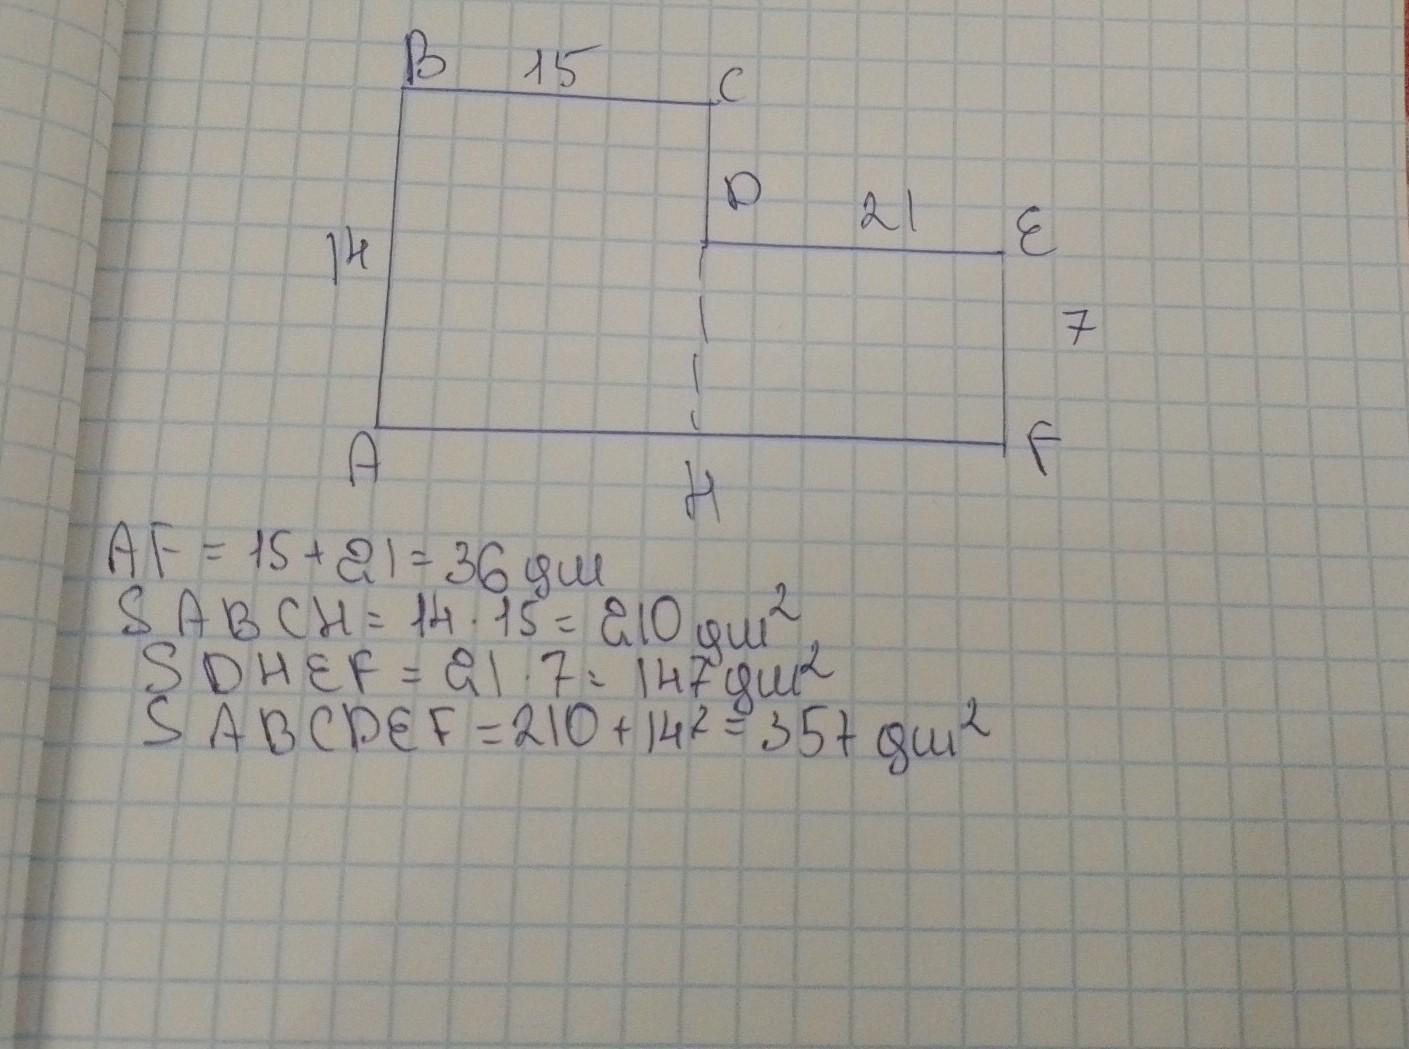 B 15 C
D
21 E
14
7
A H F
AF = 15 + 21 = 36 дм
SABCH = 14 · 15 = 210 дм²
SDHEF = 21 · 7 = 147 дм²
SABCDEF = 210 + 147 = 357 дм²